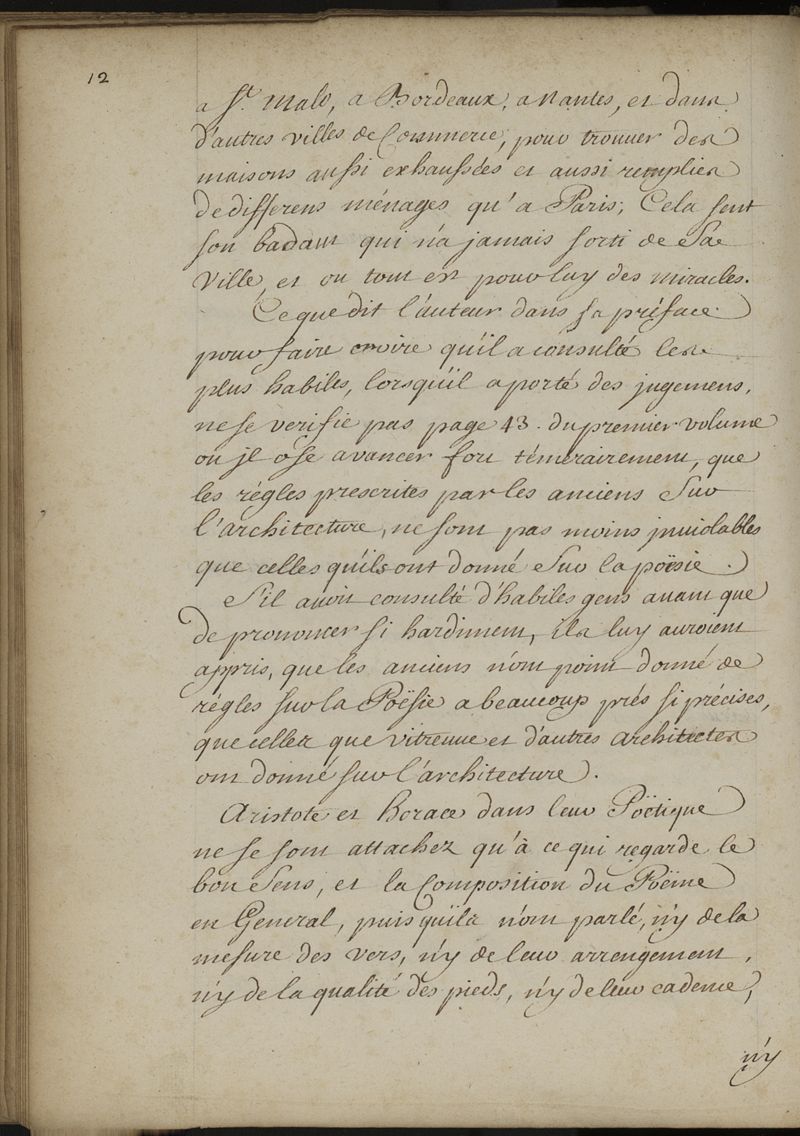 12
a St. Malo, a Bordeaux, a Nantes, et dans
d'autres villes de Commerce, pour trouver des
maisons aussi exhaussées et aussi remplies
de differens ménages qu'a Paris; Cela sent
son badaut qui n'a jamais sorti de Sa
Ville, et ou tout est pour luy des miracles.
Ce que dit l'auteur dans sa préface
pour faire croire qu'il a consulté les
plus habiles, lorsqu'il a porté des jugemens,
ne se verifie pas page 43. du premier volume
ou jl ose avancer fort témerairement, que
les régles prescrites par les anciens Sur
l'architecture, ne sont pas moins jnuiolables
que celles qu'ils ont donné Sur la poësie.
S'il auoit consulté d'habiles gens auant que
de prononcer si hardiment, ils luy auroient
appris, que les anciens n'ont point donné de
régles sur la Poësie a beaucoup prés si précises,
que celles que vitreuue et d'autres architectes
ont donné sur l'architecture.
Aristote et horace dans leur Poëtique
ne se sont attachez qu'à ce qui regarde le
bon Sens, et la Composition du Poëme
en General, puis qu'ils n'ont parlé, n'y de la
mesure des vers, n'y de leur arrengement,
n'y de la qualité des pieds, n'y de leur cadence,
n'y